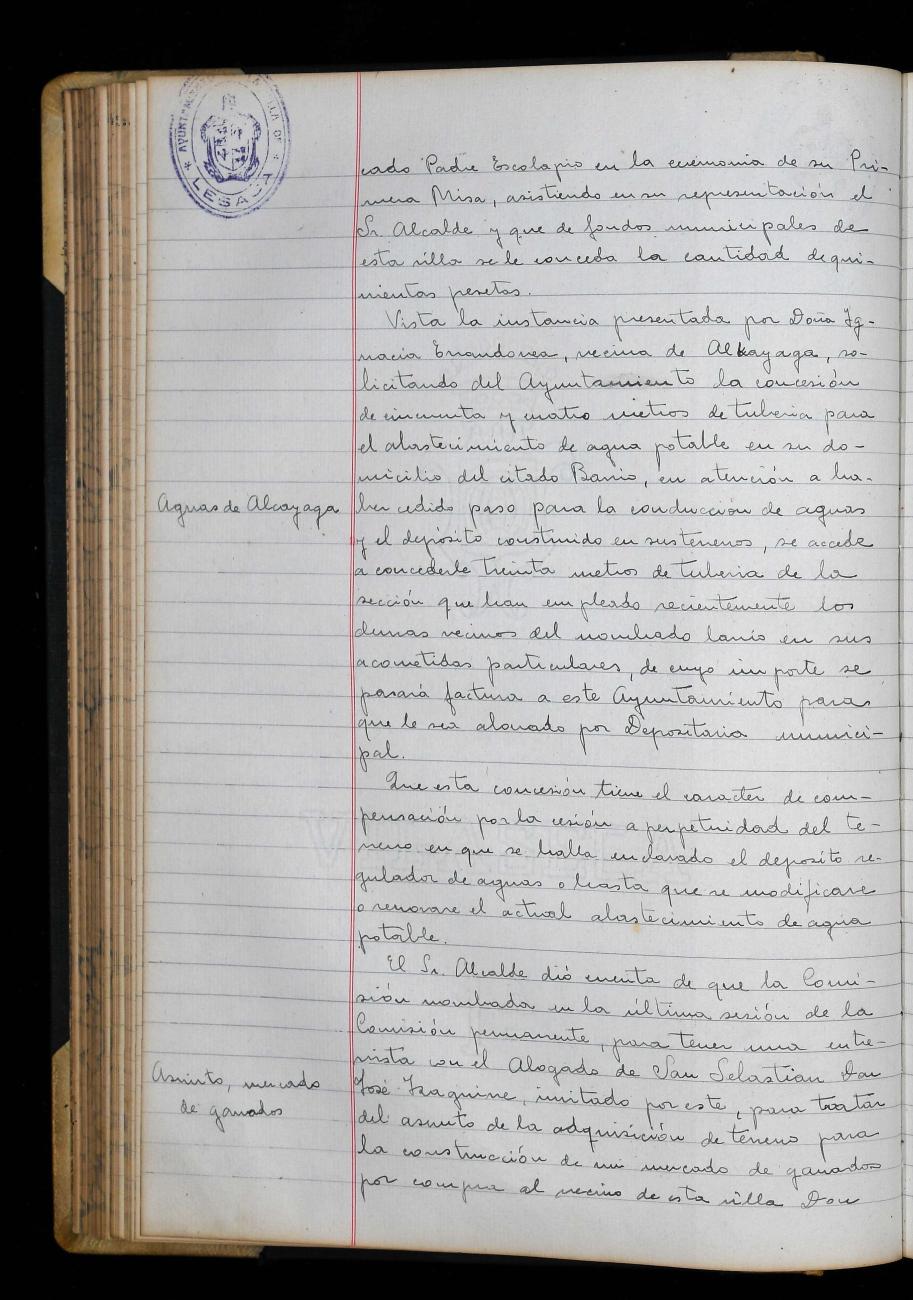 AYUNTAMIENTO
LLA DE
LESACA
cado Padre Escolapio en la ceremonia de su Pri-
mera Misa, asistiendo en su representación el
Sr. Alcalde y que de fondos municipales de
esta villa se le conceda la cantidad de qui-
nientas pesetas.
Vista la instancia presentada por Doña Ig-
nacia Errandonea, vecina de Alkayaga, so-
licitando del Ayuntamiento la concesión
de cincuenta y cuatro metros de tuberia para
el abastecimiento de agua potable en su do-
micilio del citado Barrio, en atención a ha-
Aguas de Alcayaga
ber cedido paso para la conducción de aguas
y el depósito construido en sus terrenos, se accede
a concederle treinta metros de tuberia de la
sección que han empleado recientemente los
demas vecinos del nombrado barrio en sus
acometidas particulares, de cuyo importe se
pasará factura a este Ayuntamiento para
que le sea abonado por Depositaria munici-
pal.
Que esta concesión tiene el caracter de com-
pensación por la cesión a perpetuidad del te-
rreno en que se halla enclavado el deposito re-
gulador de aguas o hasta que se modificare
o renovare el actual abastecimiento de agua
potable.
El Sr. Alcalde dió cuenta de que la Comi-
sión nombrada en la última sesión de la
Comisión permanente, para tener una entre-
vista con el Abogado de San Sebastian Don
Asunto, mercado
de ganados
José Izaguirre, invitado por este, para tratar
del asunto de la adquisición de terreno para
la construcción de un mercado de ganados
por compra al vecino de esta villa Don